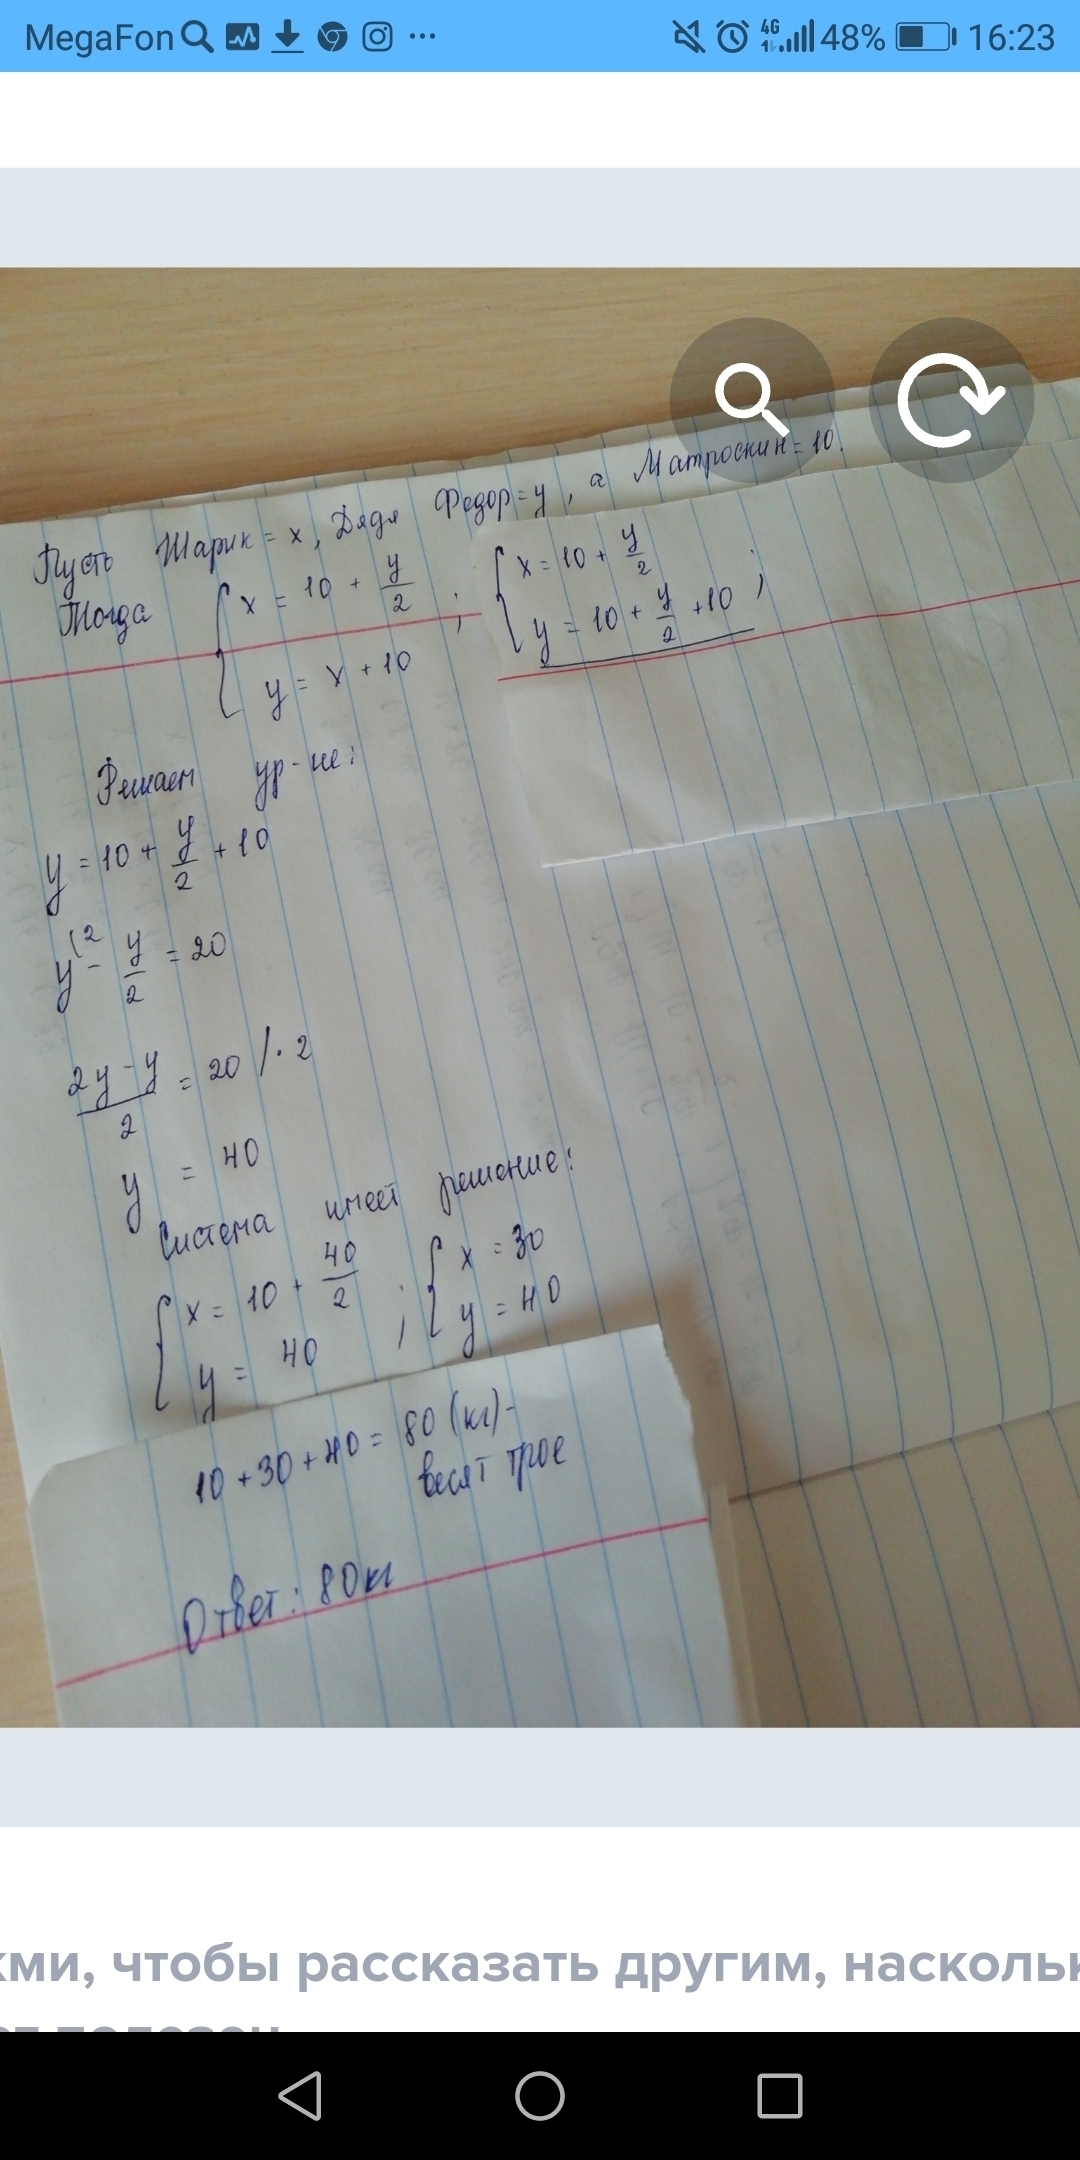 MegaFon
4G
48%
16:23
Пусть Шарик = x, Дядя Федор = y, а Матроскин = 10.
Тогда { x = 10 + y/2 ; { x = 10 + y/2
y = x + 10 y = 10 + y/2 + 10 ;
Решаем ур-ие:
y = 10 + y/2 + 10
y(2 - y/2 = 20
2y - y/2 = 20 /· 2
y = 40
Система имеет решение:
{ x = 10 + 40/2 ; { x = 30
y = 40 y = 40
10 + 30 + 40 = 80 (кг) -
весят трое
Ответ: 80 кг
чтобы рассказать другим,